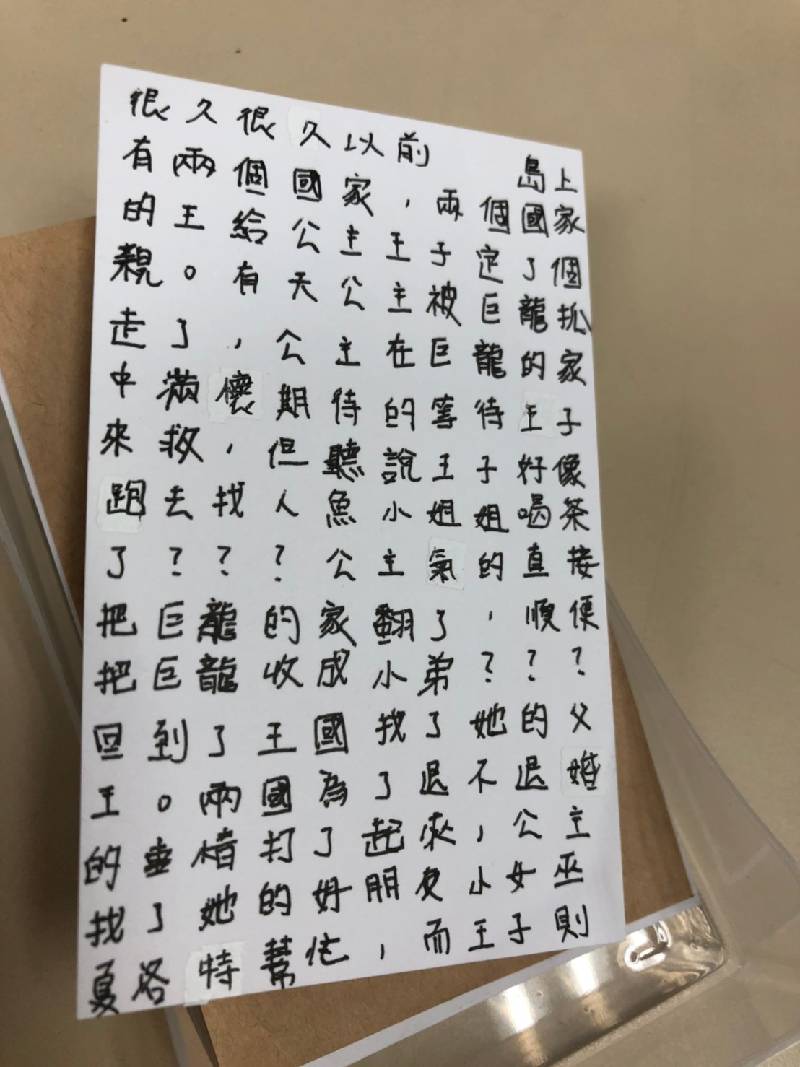 很久很久以前　　島上
有兩個國家，兩個國家
的王給公主王子定了個
親。有天公主被巨龍抓
走了，公主在巨龍的家
中滿懷期待的等待王子
來救，但聽說王子好像
跑去找人魚小姐姐喝茶
了？？？公主氣的直接
把巨龍的家翻了，順便
把巨龍收成小弟？？？
回到了王國找了她的父
王。兩國為了退不退婚
的事情打了起來，公主
找了她的好朋友小女巫
夏洛特幫忙，而王子則